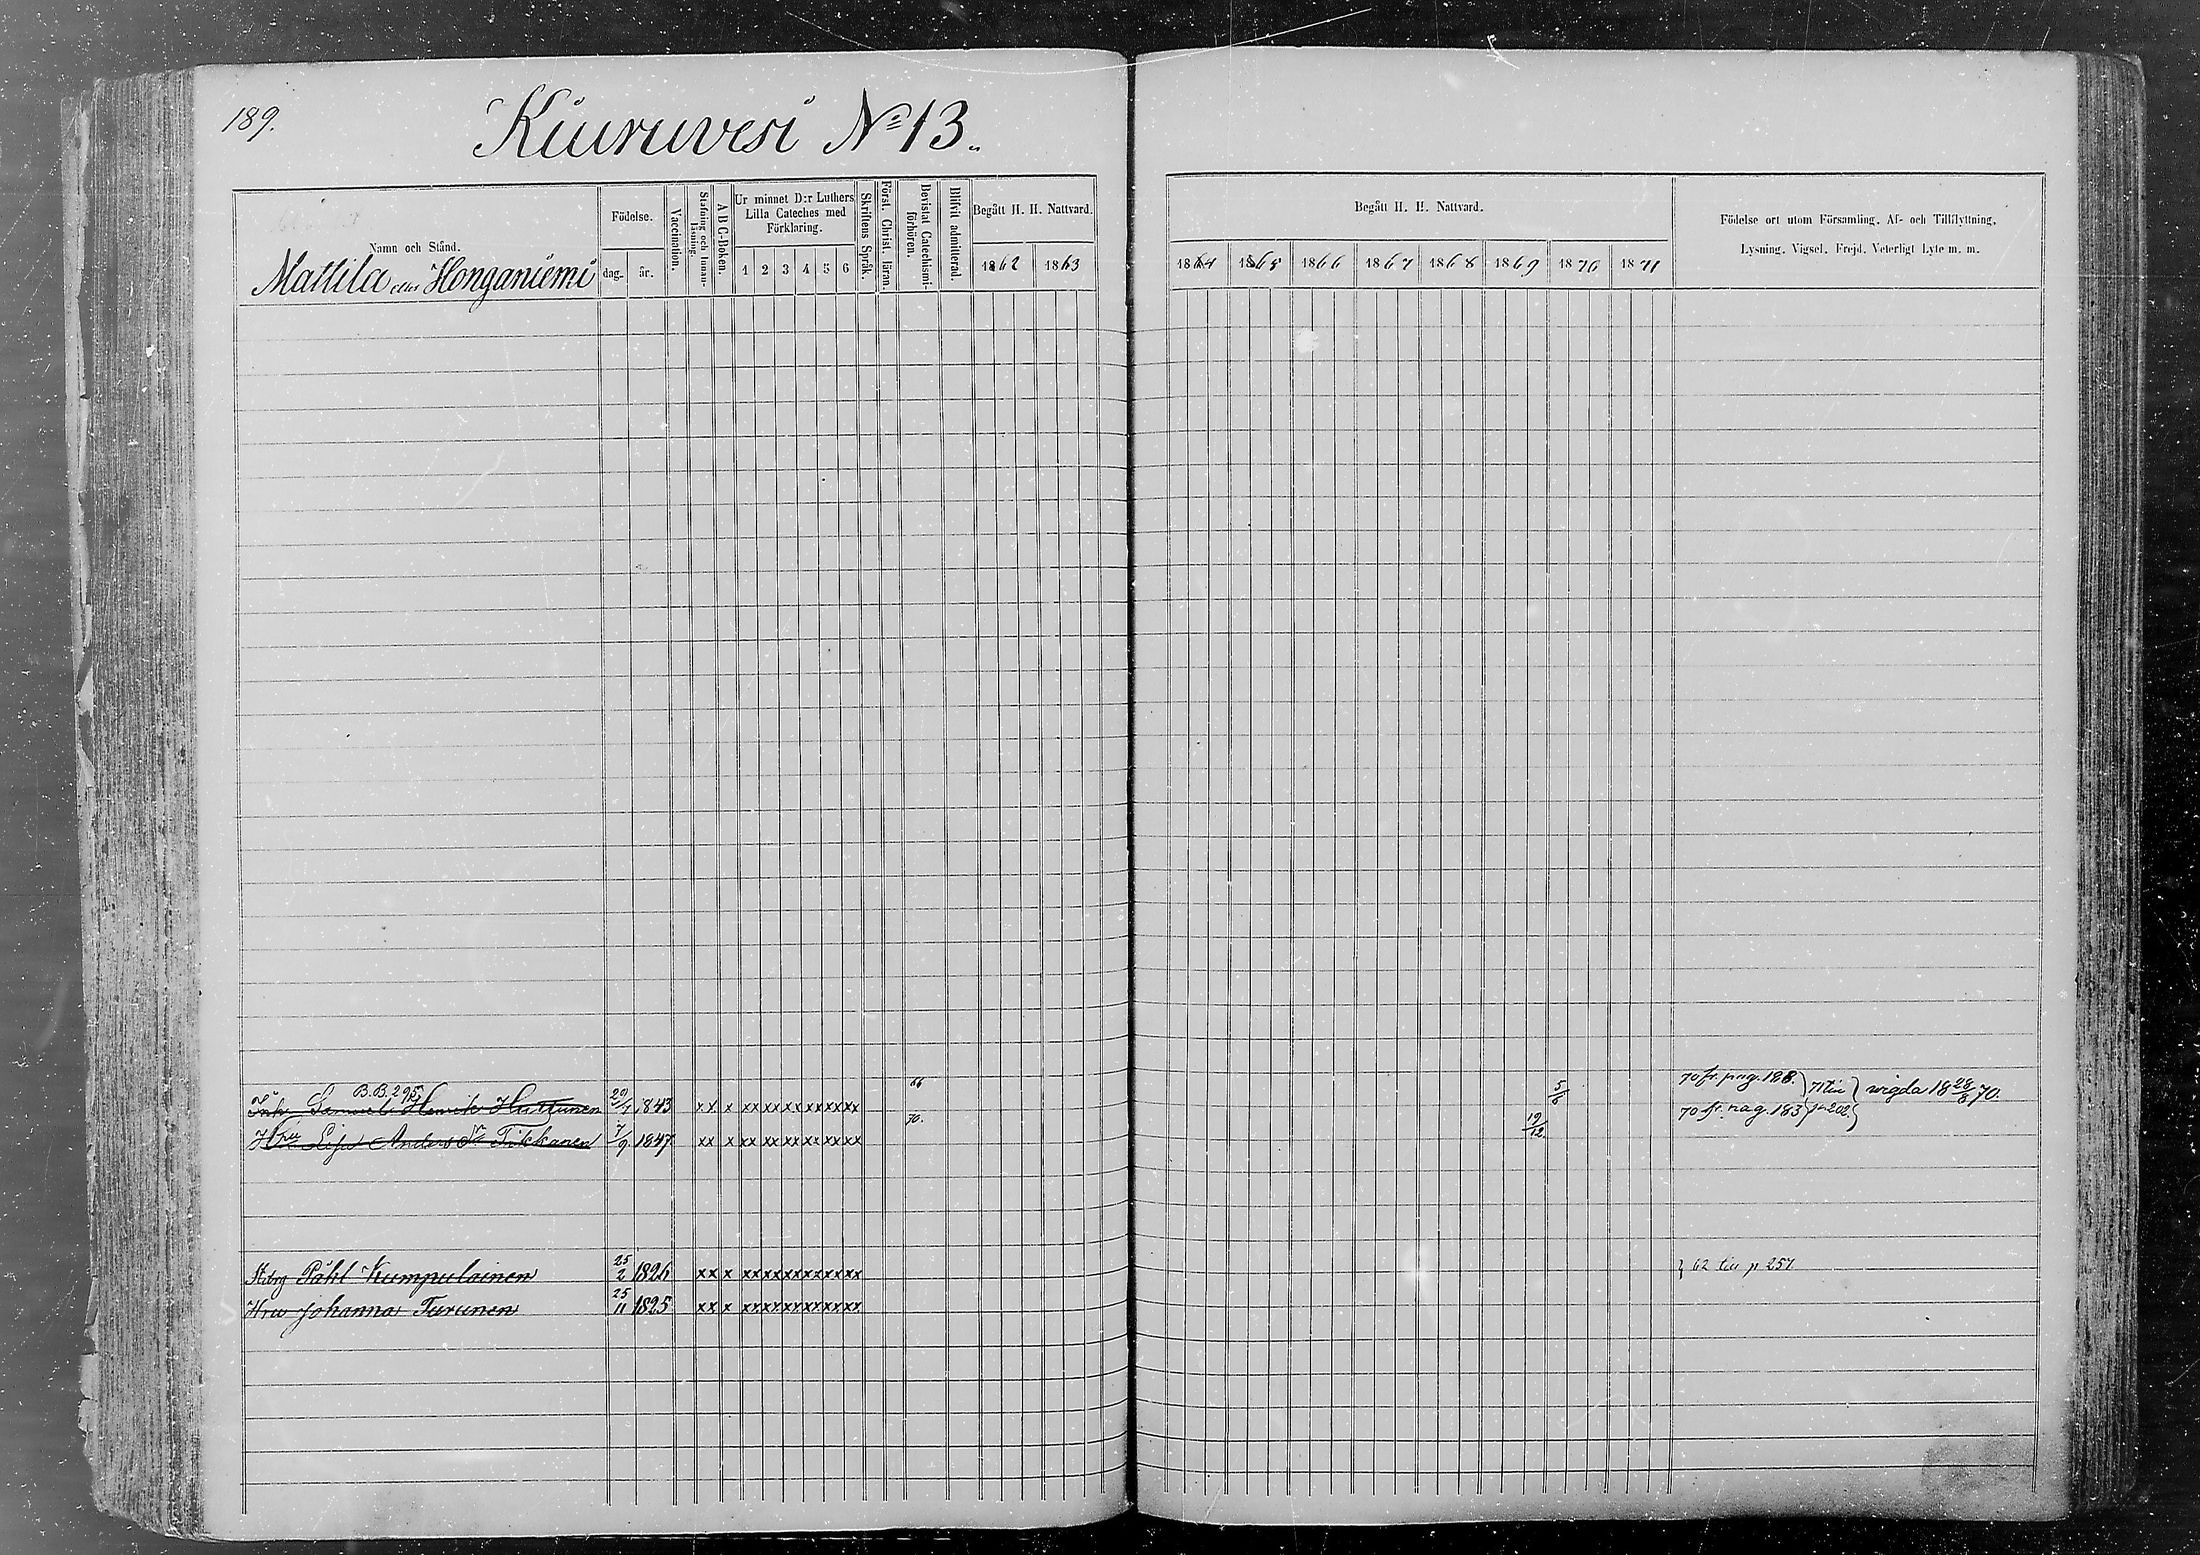 189.
Kiuruvesi No 13.
Namn och Stånd.
Mattila eller Honganiemi
Födelse.
dag.
år.
Vaccination.
Stafning och Innanläsning.
A B C-Boken.
Ur minnet D:r Luthers Lilla Cateches med Förklaring.
1 2 3 4 5 6
Skriftens Språk.
Först. Christ. läran.
Bevistat Catechismiförhören.
Blifvit admitterad.
Begått H. H. Nattvard.
1862 1863
Begått H. H. Nattvard.
1864 1865 1866 1867 1868 1869 1870 1871
Födelse ort utom Församling, Af- och Tillflyttning,
Lysning, Vigsel, Frejd, Veterligt Lyte m. m.
B.B. 295
Inh. Samuel Henrik Huttunen 29/7 1843 xx x xx xx xx xx xx xx 66 5/6 70 fr. pag. 188. 71 till p. 202 vigda 18 28/8 70.
Hru Eija Anders Dr Tikkanen 7/9 1847 xx x xx xx xx xx xx xx 70. 19/12 70 fr. pag. 183
Påhl Kumpulainen 25/2 1826 xx x xx xx xx xx xx xx 62 till p 257
Hru Johanna Turunen 25/11 1825 xx x xx xx xx xx xx xx